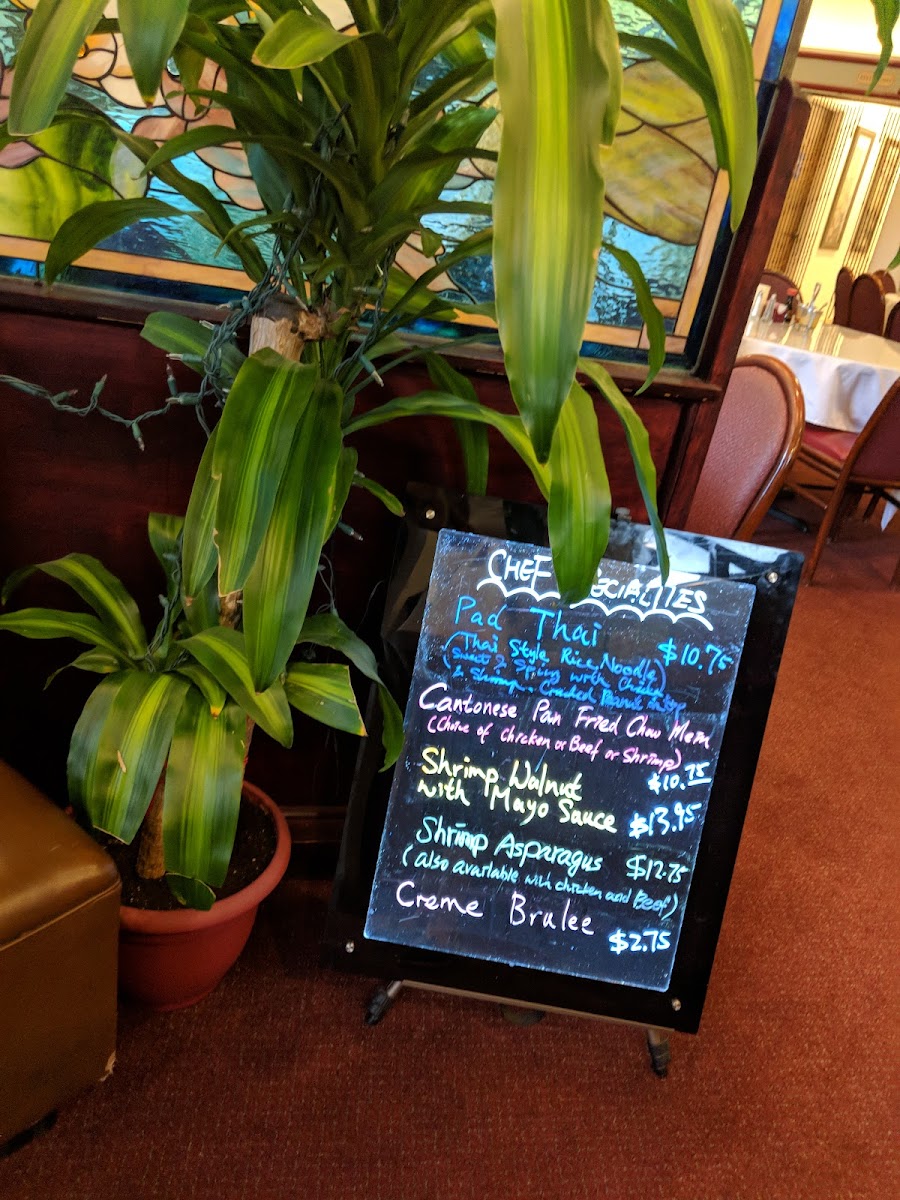 CHEF SPECIALTIES
Pad Thai
$10.75
(Thai Style Rice Noodle)
(Sweet & Spicy with Chicken
& Shrimp. Crushed Peanut on top
Cantonese Pan Fried Chow Mein
(Choice of Chicken or Beef or Shrimp)
$10.75
Shrimp Walnut
with Mayo Sauce $13.95
Shrimp Asparagus $12.75
(also available with chicken and Beef)
Creme Brulee
$2.75